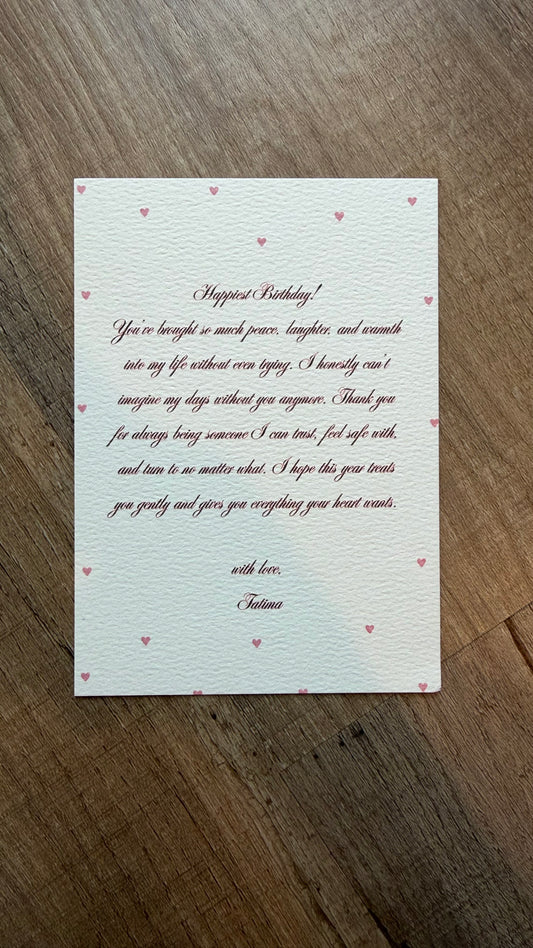 Happiest Birthday!
You've brought so much peace, laughter, and warmth
into my life without even trying. I honestly can't
imagine my days without you anymore. Thank you
for always being someone I can trust, feel safe with,
and turn to no matter what. I hope this year treats
you gently and gives you everything your heart wants.
with love,
Fatima